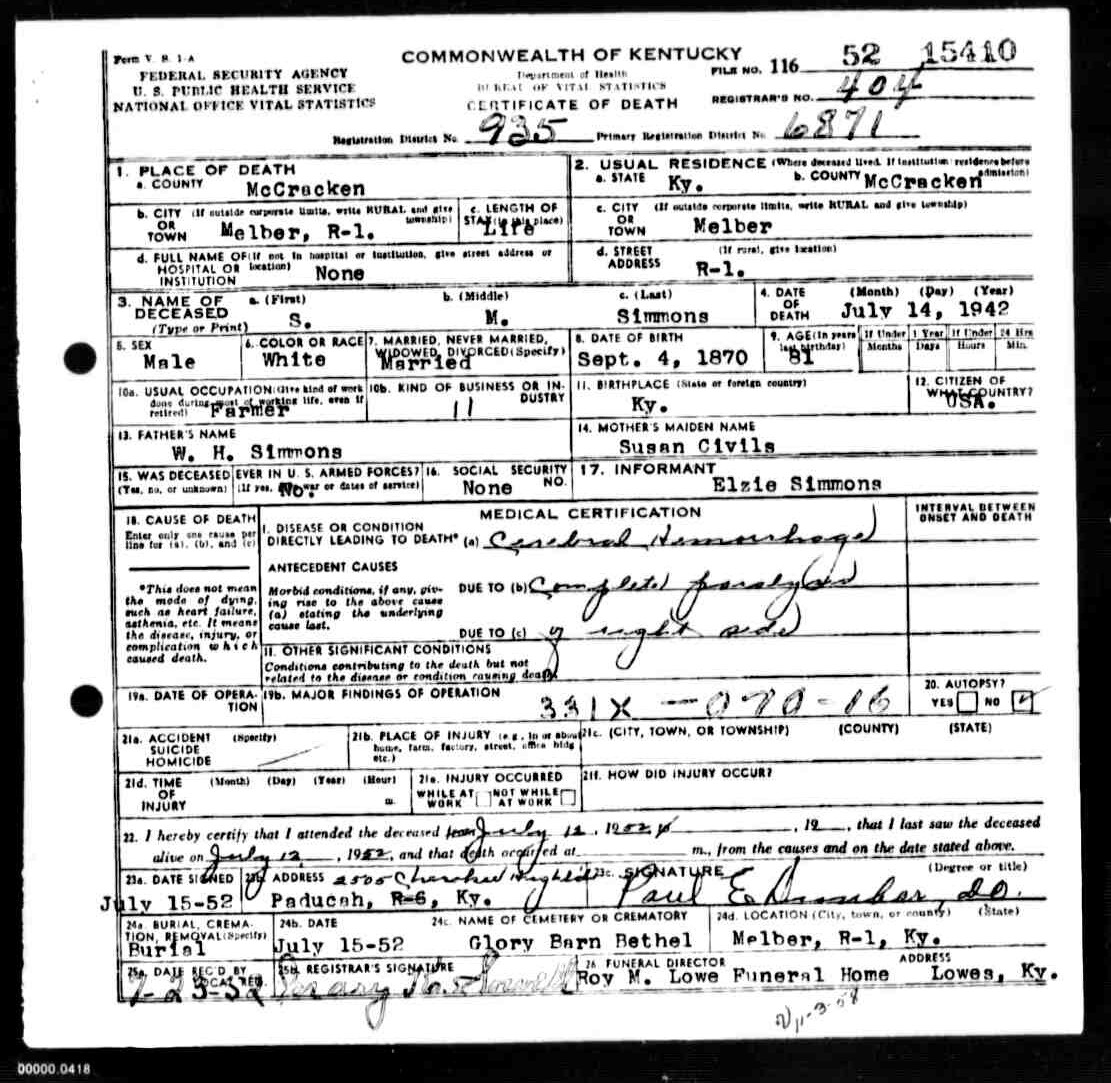 Form V. S. 1-A
COMMONWEALTH OF KENTUCKY
FEDERAL SECURITY AGENCY
U. S. PUBLIC HEALTH SERVICE
NATIONAL OFFICE VITAL STATISTICS
Department of Health
BUREAU OF VITAL STATISTICS
CERTIFICATE OF DEATH
FILE NO. 116 52 15410
REGISTRAR'S NO. 404
Registration District No. 935 Primary Registration District No. 6871
1. PLACE OF DEATH
a. COUNTY McCracken
2. USUAL RESIDENCE (Where deceased lived. If institution: residence before admission)
a. STATE Ky. b. COUNTY McCracken
b. CITY (If outside corporate limits, write RURAL and give township)
OR
TOWN Melber, R-1.
c. LENGTH OF
STAY (in this place)
Life
c. CITY (If outside corporate limits, write RURAL and give township)
OR
TOWN Melber
d. FULL NAME OF (If not in hospital or institution, give street address or location)
HOSPITAL OR
INSTITUTION None
d. STREET (If rural, give location)
ADDRESS R-1.
3. NAME OF DECEASED
(Type or Print)
a. (First) b. (Middle) c. (Last)
S. M. Simmons
4. DATE OF DEATH (Month) (Day) (Year)
July 14, 1942
5. SEX
Male
6. COLOR OR RACE
White
7. MARRIED, NEVER MARRIED,
WIDOWED, DIVORCED (Specify)
Married
8. DATE OF BIRTH
Sept. 4, 1870
9. AGE (In years last birthday)
81
If Under 1 Year If Under 24 Hrs
Months Days Hours Min.
10a. USUAL OCCUPATION (Give kind of work done during most of working life, even if retired)
Farmer
10b. KIND OF BUSINESS OR INDUSTRY
11
11. BIRTHPLACE (State or foreign country)
Ky.
12. CITIZEN OF WHAT COUNTRY?
USA.
13. FATHER'S NAME
W. H. Simmons
14. MOTHER'S MAIDEN NAME
Susan Civils
15. WAS DECEASED EVER IN U. S. ARMED FORCES?
(Yes, no, or unknown) (If yes, give war or dates of service)
No.
16. SOCIAL SECURITY NO.
None
17. INFORMANT
Elzie Simmons
18. CAUSE OF DEATH
Enter only one cause per
line for (a), (b), and (c)
*This does not mean
the mode of dying,
such as heart failure,
asthenia, etc. It means
the disease, injury, or
complication which
caused death.
MEDICAL CERTIFICATION
INTERVAL BETWEEN
ONSET AND DEATH
I. DISEASE OR CONDITION
DIRECTLY LEADING TO DEATH* (a) Cerebral Hemorrhage
ANTECEDENT CAUSES
Morbid conditions, if any, giv-
ing rise to the above cause
(a) stating the underlying
cause last.
DUE TO (b) Complete paralysis
DUE TO (c) of right side
II. OTHER SIGNIFICANT CONDITIONS
Conditions contributing to the death but not
related to the disease or condition causing death.
19a. DATE OF OPERA-
TION
19b. MAJOR FINDINGS OF OPERATION
331X - 070 - 16
20. AUTOPSY?
YES NO
21a. ACCIDENT (Specify)
SUICIDE
HOMICIDE
21b. PLACE OF INJURY (e.g., in or about
home, farm, factory, street, office bldg
etc.)
21c. (CITY, TOWN, OR TOWNSHIP) (COUNTY) (STATE)
21d. TIME (Month) (Day) (Year) (Hour)
OF
INJURY m.
21e. INJURY OCCURRED
WHILE AT WORK NOT WHILE AT WORK
21f. HOW DID INJURY OCCUR?
22. I hereby certify that I attended the deceased from July 12, 1952, 19 , that I last saw the deceased
alive on July 12, 1952, and that death occurred at m., from the causes and on the date stated above.
23a. DATE SIGNED
July 15-52
23b. ADDRESS 2505 Cherokee
Paducah, R-6, Ky.
23c. SIGNATURE (Degree or title)
Paul E Dunbar, DO.
24a. BURIAL, CREMA-
TION, REMOVAL (Specify)
Burial
24b. DATE
July 15-52
24c. NAME OF CEMETERY OR CREMATORY
Glory Barn Bethel
24d. LOCATION (City, town, or county) (State)
Melber, R-1, Ky.
25a. DATE REC'D BY
LOCAL REG.
7-23-52
25b. REGISTRAR'S SIGNATURE
26. FUNERAL DIRECTOR ADDRESS
Roy M. Lowe Funeral Home Lowes, Ky.
11-3-58
00000.0418